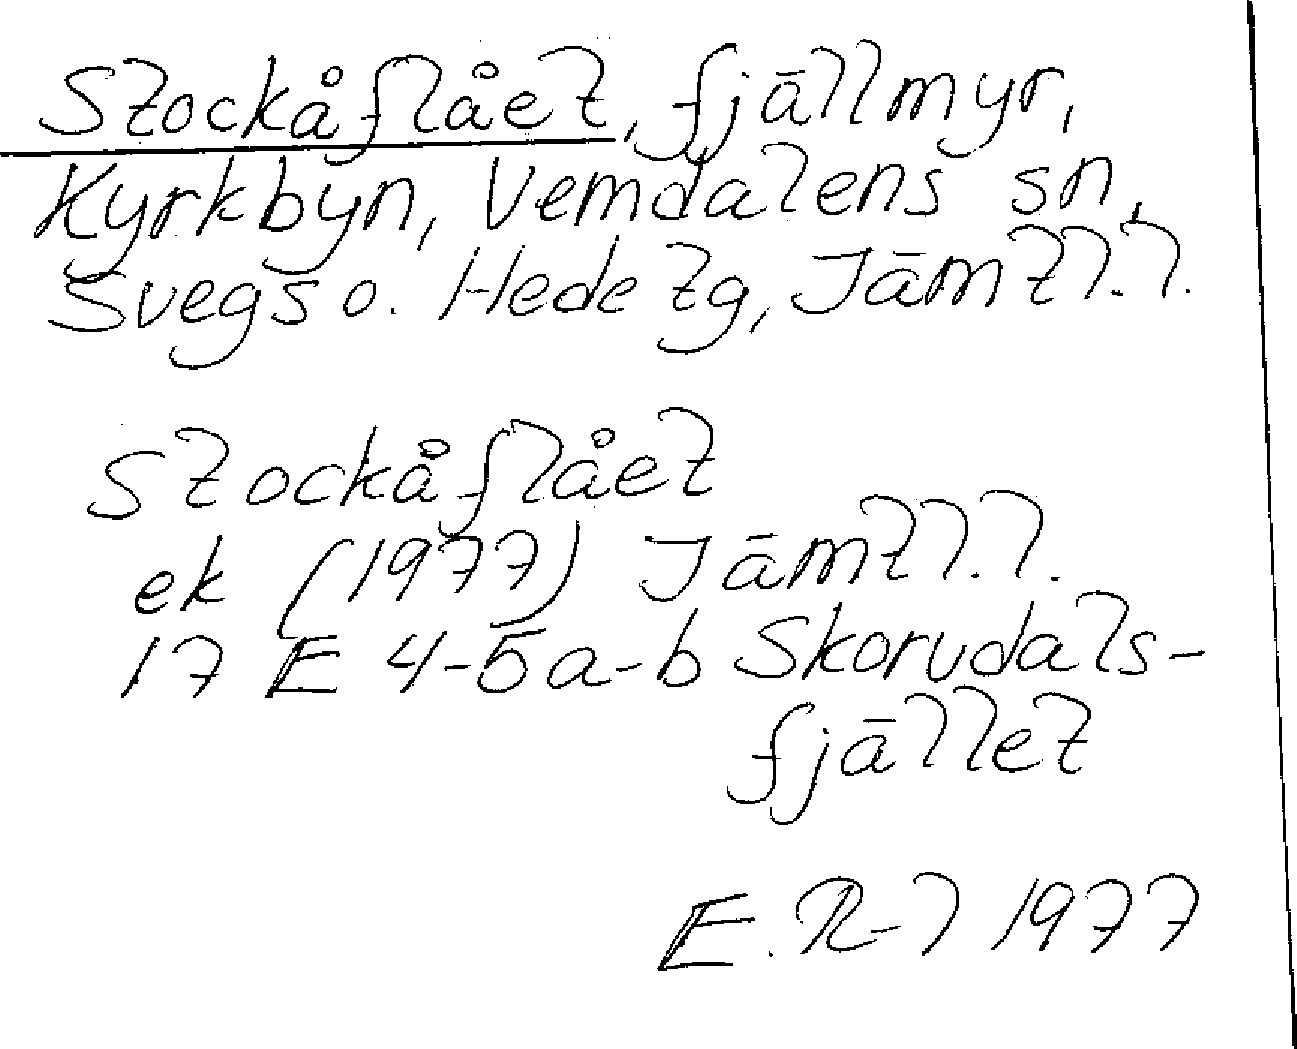 Stockåflået, fjällmyr,
Kyrkbyn, Vemdalens sn,
Svegs o. Hede tg, Jämtl.l.
Stockåflået
ek (1977) Jämtl.l.
17 E 4-5a-b Skorvdals-
fjället
E. R-l 1977